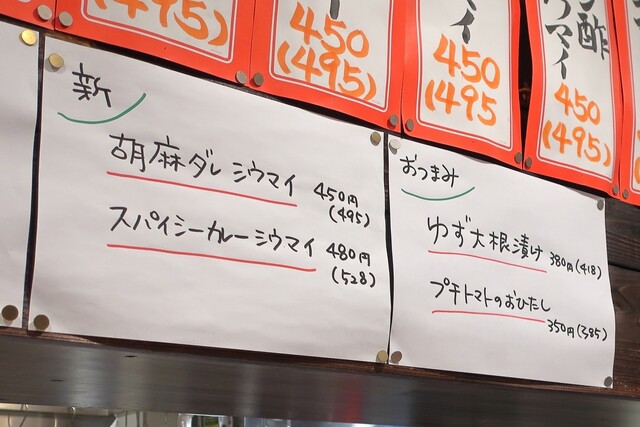 (495)
450
(495)
イ
450
(495
酢
ウマイ
450
(495)
新
胡麻ダレシウマイ
450円
(495)
スパイシーカレーシウマイ
480円
(528)
おつまみ
ゆず大根漬け
380円(418)
プチトマトのおひたし
350円(385)